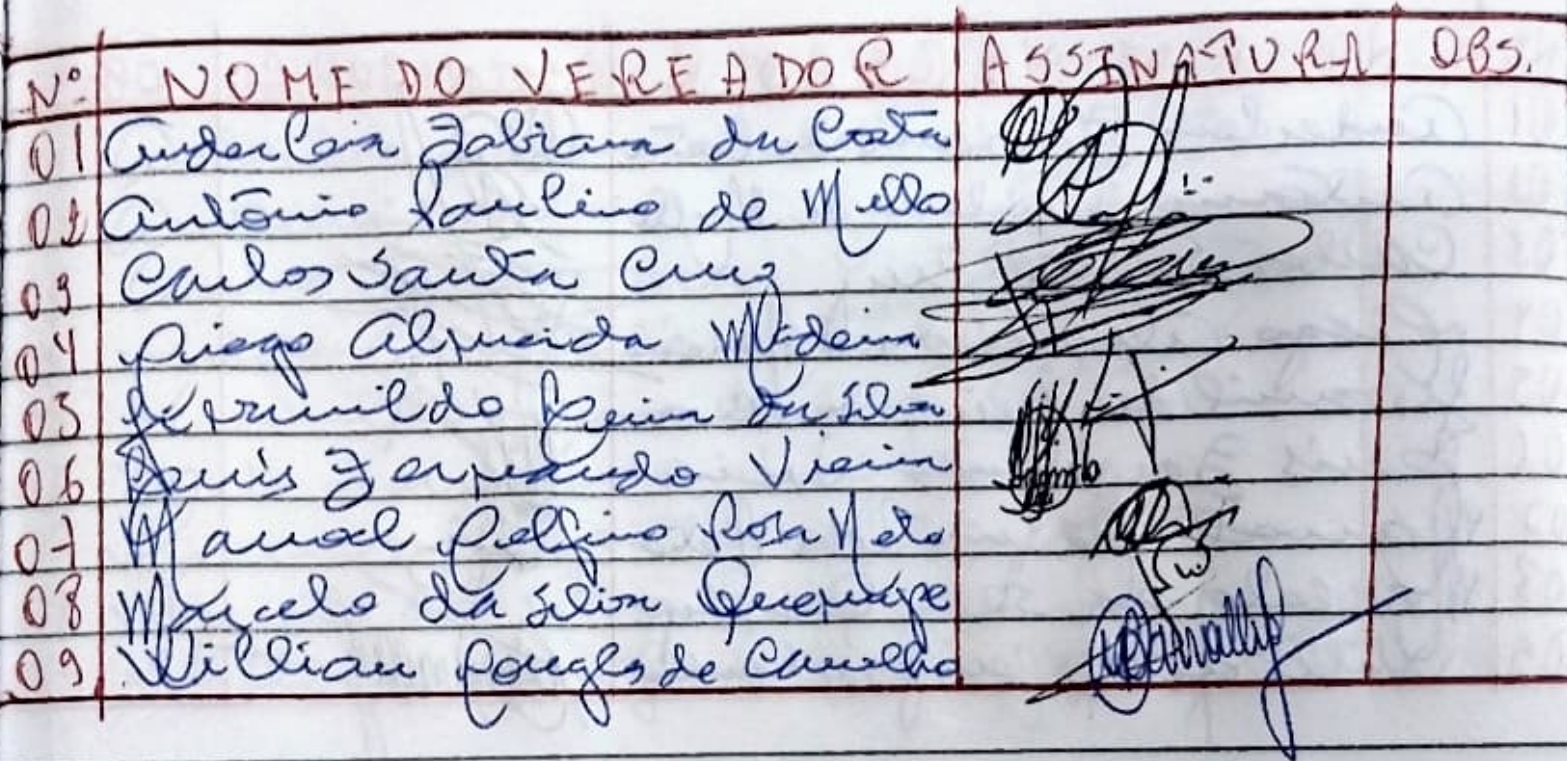 Nº NOME DO VEREADOR ASSINATURA OBS.
01 Anderleia Fabiana da Costa
02 Antônio Paulino de Mello
03 Carlos Santa Cruz
04 Diego Almeida Madeira
05 Pereira da Silva
06 Luis Fernando Vieira
07 Manoel Delfino Rosa Neto
08 Marcelo da Silva
09 Willian Douglas de Carvalho